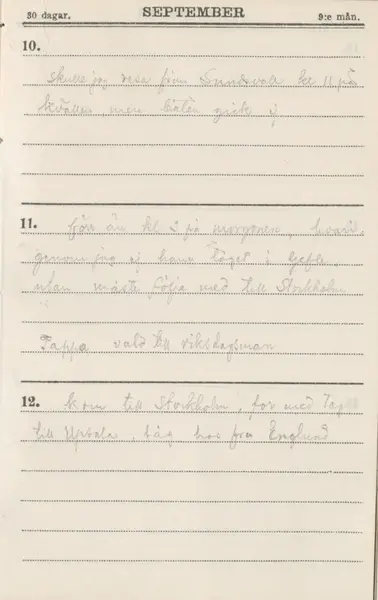 30 dagar. SEPTEMBER 9:e mån.
10.
skulle jag resa från Sundsvall kl 11 på
kvällen, men båten gick ej
11. förr än kl 2 på morgonen, hvari-
genom jag ej hann tåget i Gefle,
utan måste följa med till Stockholm
Pappa vald till riksdagsman
12. kom till Stockholm, for med tåg
till Upsala, låg hos fru Englund